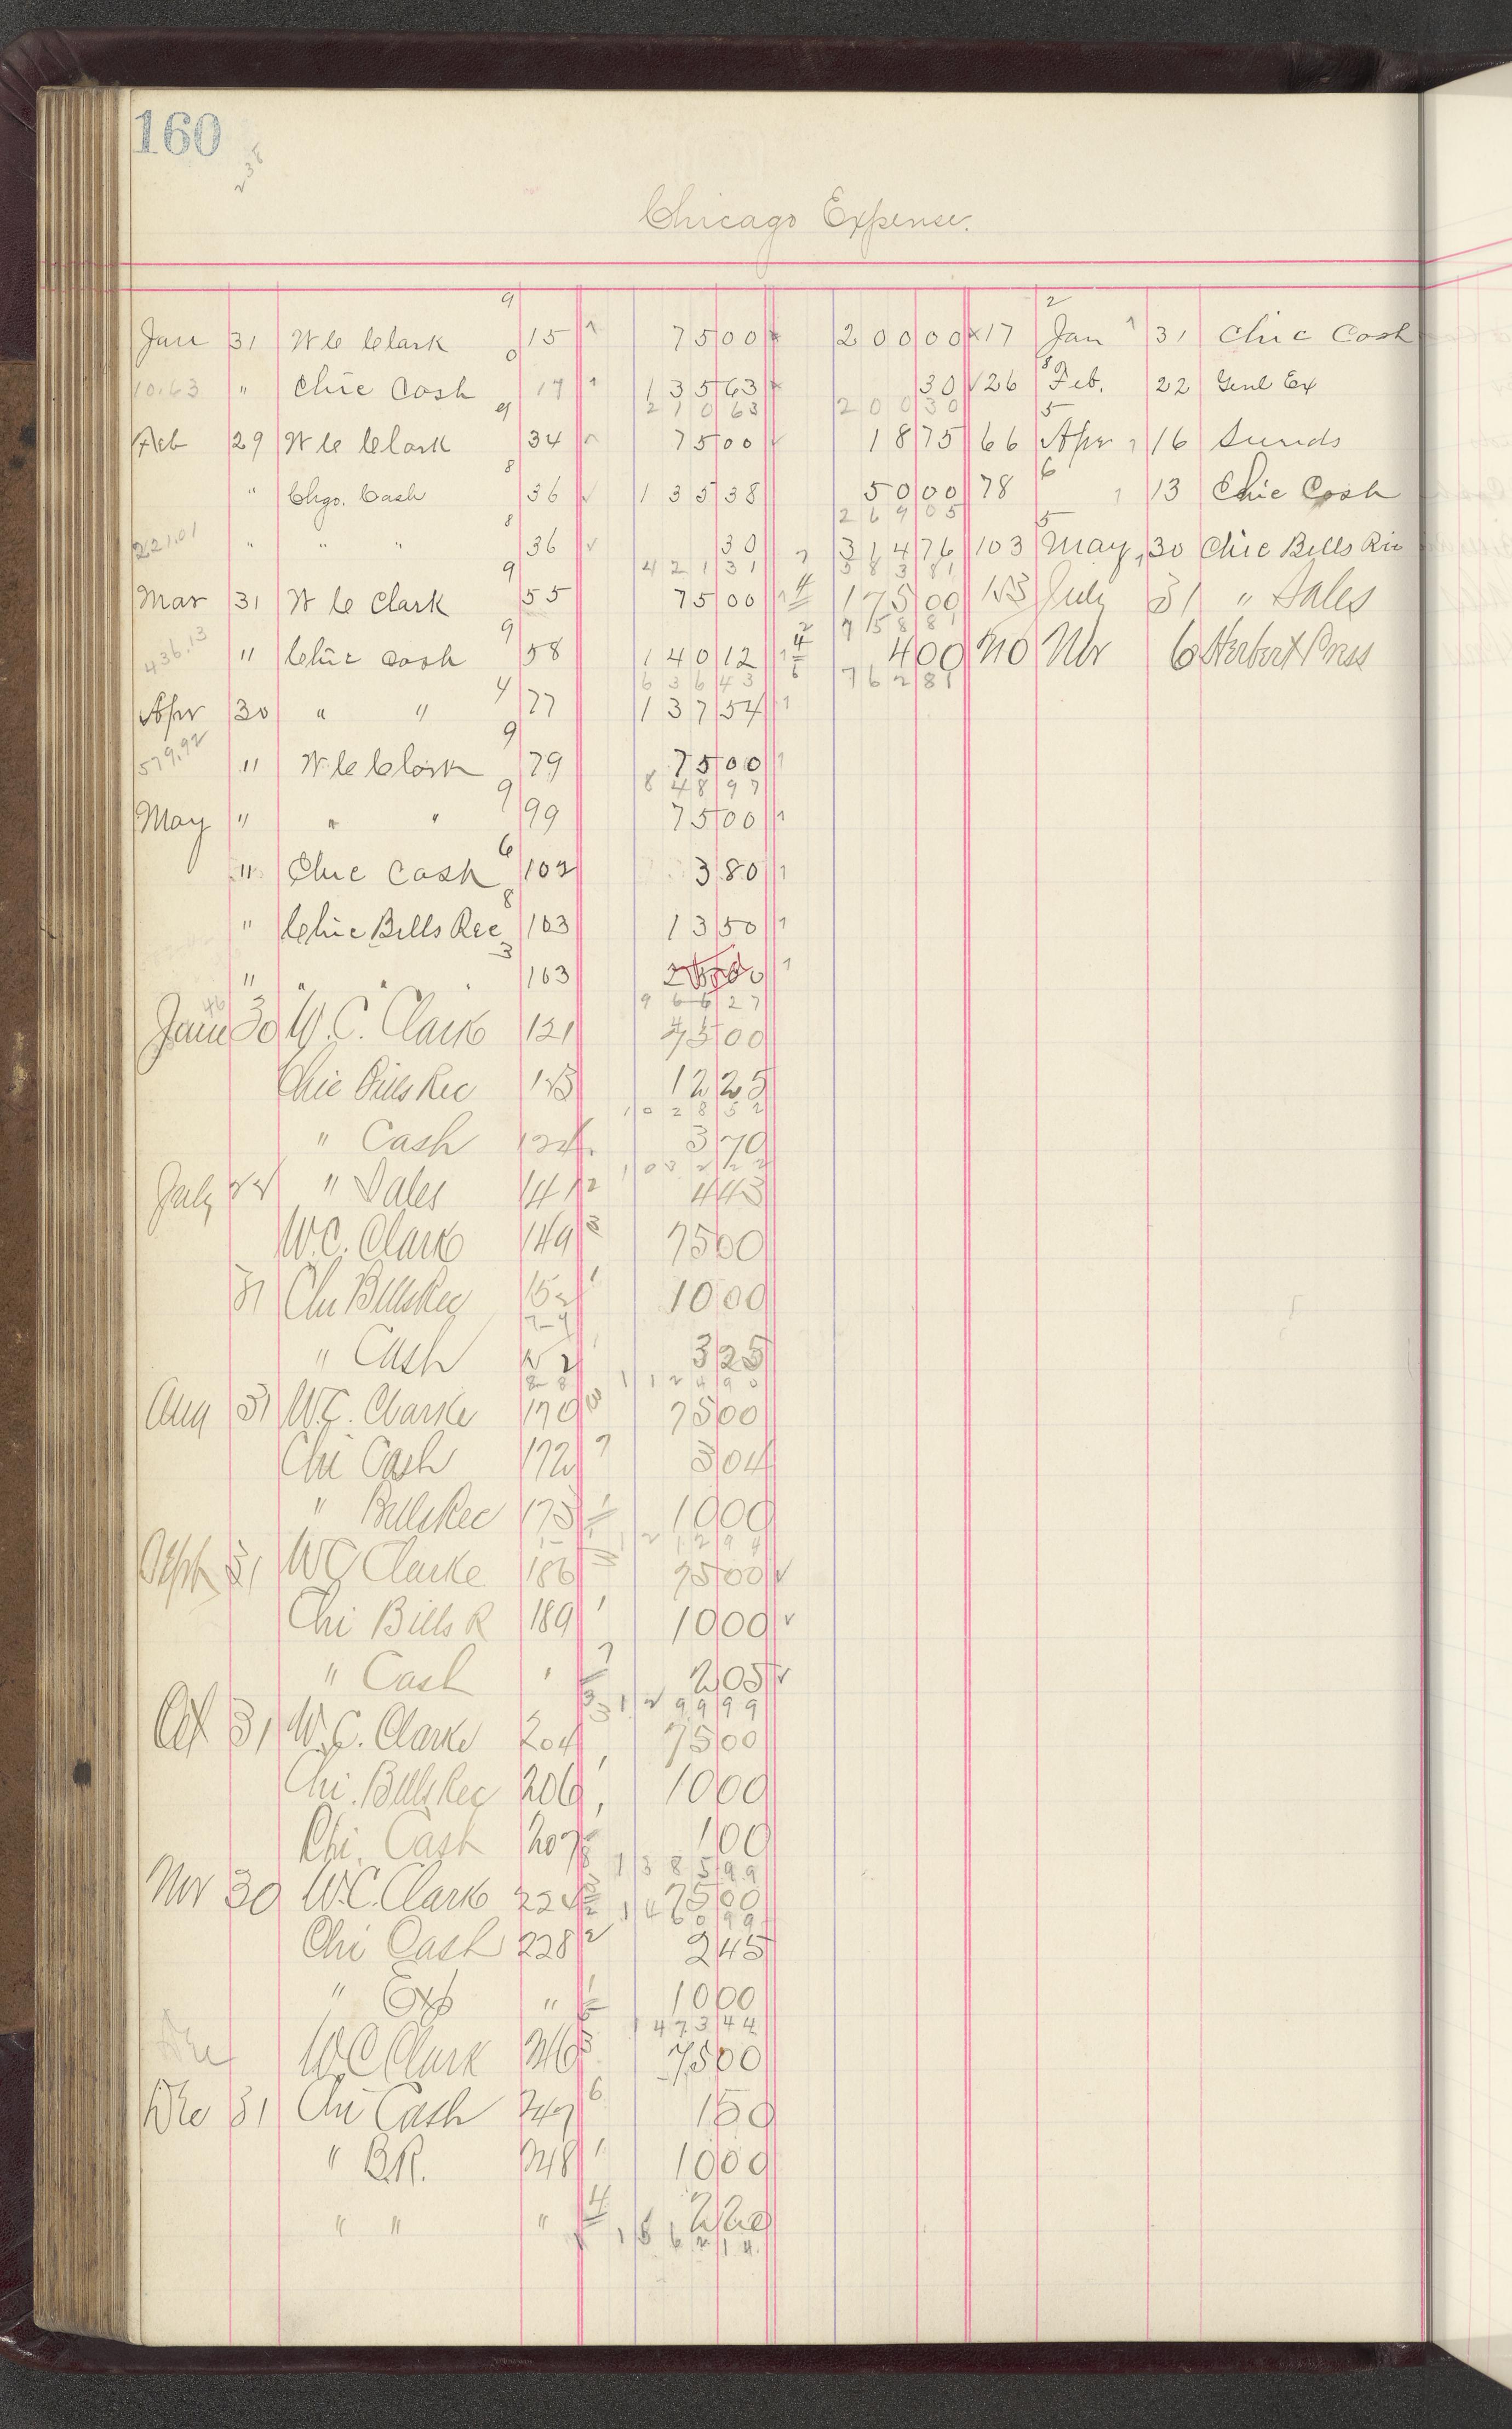 160
238
Chicago Expense.
9 2
Jan 31 W C Clark 15 75 00 200 00 17 Jan 31 Chic Cash
0
10.63 " Chic Cash 17 135 63 30 26 Feb. 22 Genl Ex
210 63 200 30
Feb 29 W C Clark 34 75 00 18 75 66 Apr 16 Sunds
8 6
" Chgo. Cash 36 135 38 50 00 78 13 Chic Cash
269 05
221.01 " " " 36 30 314 76 103 May 30 Chic Bills Rec
421 31 583 81
Mar 31 W C Clark 55 75 00 175 00 153 July 31 " Sales
758 81
436.13 " Chic Cash 58 140 12 4 00 210 Nov 6 Herbert Press
636 43 762 81
Apr 30 " " 77 137 54
579.92 " W C Clark 79 75 00
848 97
May " " " 99 75 00
" Chic Cash 102 3 80
" Chic Bills Rec 103 13 50
" " " " 103
966 27
June 30 W. C. Clark 121 75 00
Chic Bills Rec 123 12 25
1028 52
" Cash 124 3 70
1032 22
July 24 " Sales 141 4 43
W. C. Clark 149 75 00
31 Chi Bills Rec 152 10 00
" Cash 3 25
1124 90
Aug 31 W. C. Clarke 170 75 00
Chi Cash 172 3 04
" Bills Rec 173 10 00
1212 94
Sept 31 W C Clarke 186 75 00
Chi Bills R 189 10 00
" Cash " 2 05
1299 99
Oct 31 W. C. Clarke 204 75 00
Chi. Bills Rec 206 10 00
Chi. Cash 207 1 00
1385 99
Nov 30 W. C. Clark 224 75 00
1460 99
Chi Cash 228 2 45
" Exp " 10 00
1473 44
Dec W C Clark 246 75 00
Dec 31 Chi Cash 247 1 50
" B.R. 248 10 00
" " " 2 20
1562 14